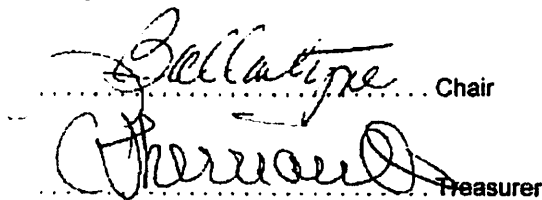 Ballantyne Chair
Treasurer